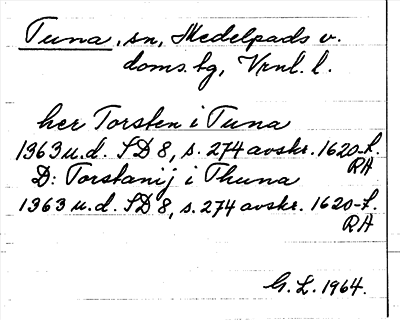 Tuna, sn, Medelpads v.
doms.bg, Vrnl. l.
her Torsten i Tuna
1363 u.d. SD 8, s. 274 avskr. 1620-t.
RA
D: Torstanij i Thuna
1363 u.d. SD 8, s. 274 avskr. 1620-t.
RA
G. L. 1964.